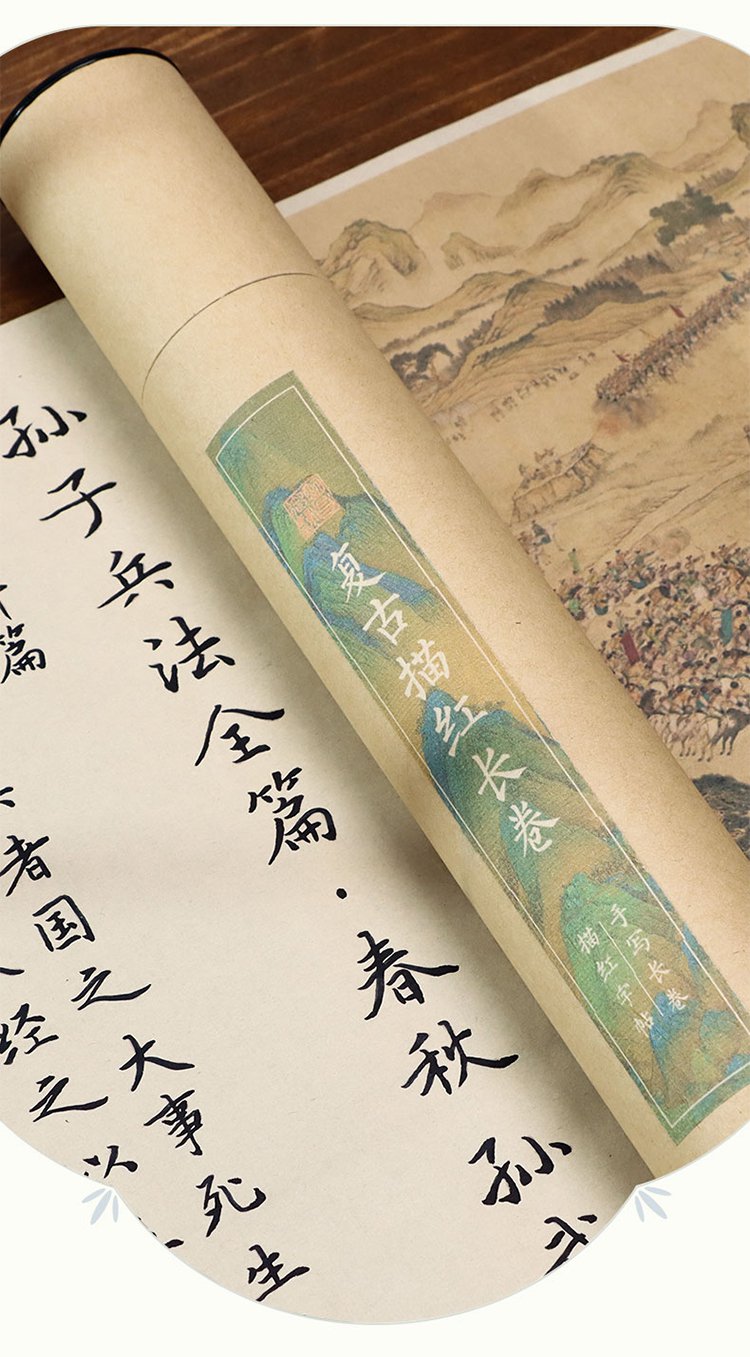 复古描红长卷
手写长卷
描红字帖
孙子兵法全篇·春秋 孙
篇
者国之大事死生
经之以